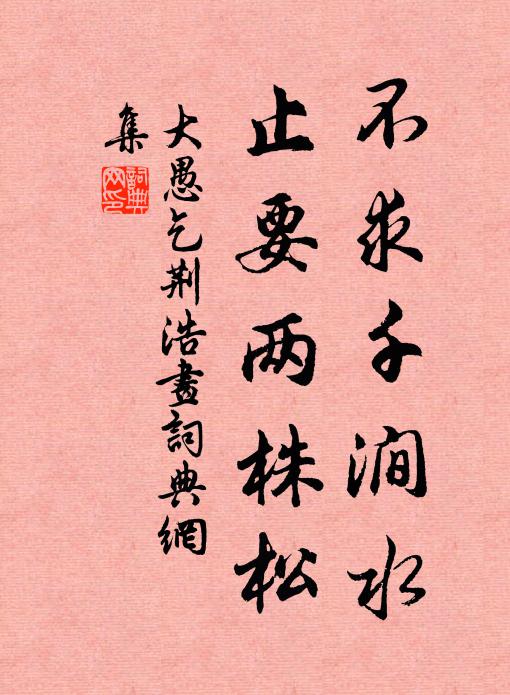 不求千涧水
止要两株松
大愚乞荆浩畫詞典網
集
詞典
网印